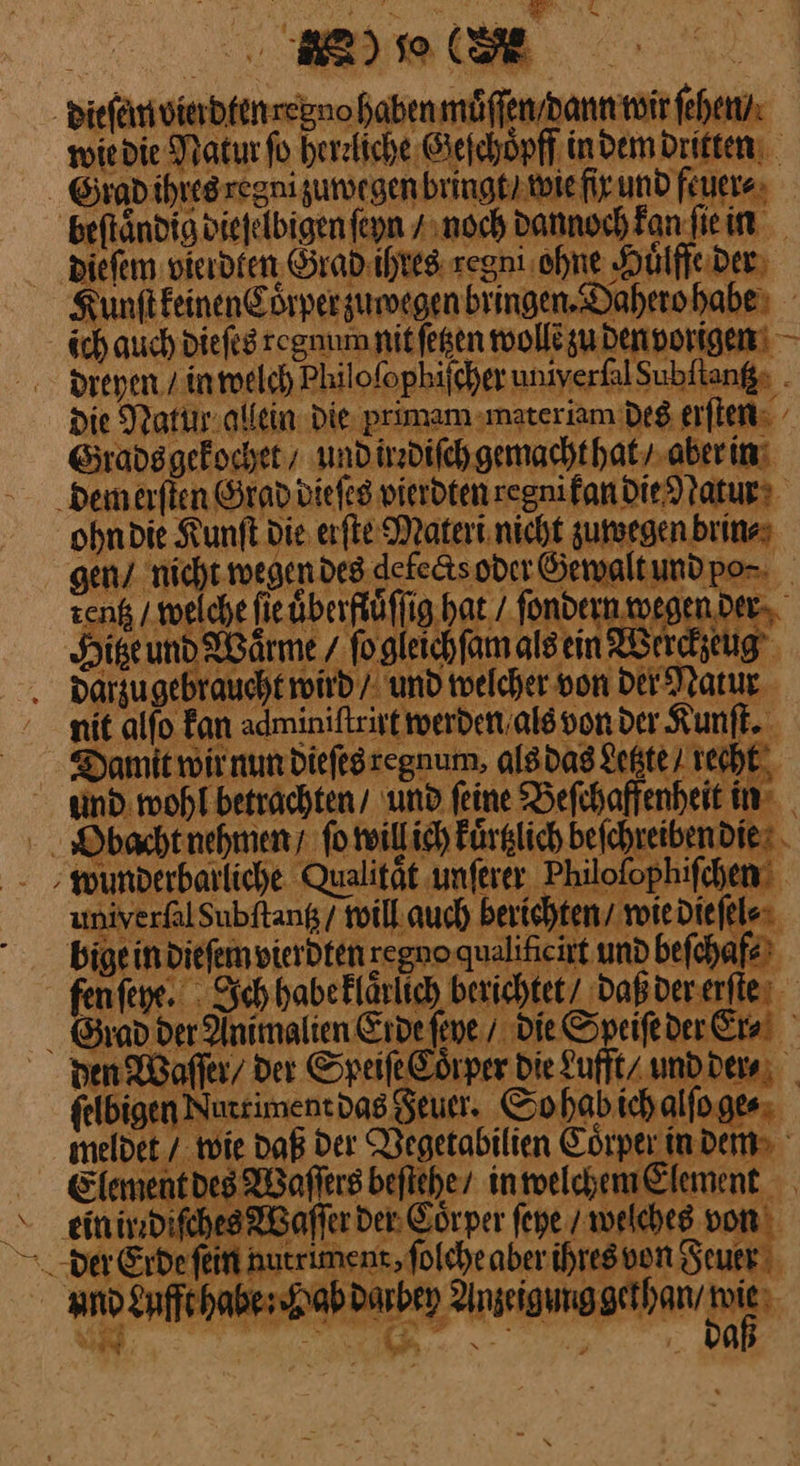 ) 10 (
dieſem vierdten regno haben muͤſſen / dann wir ſehen /
wie die Natur ſo herꝛliche Geſchoͤpff in dem dritten
Grad ihres regni zuwegen bringt / wie fix und feuer⸗
beſtaͤndig dieſelbigen ſeyn / noch dannoch kan ſie in
dieſem vierdten Grad ihres regni ohne Huͤlffe der
Kunſt keinen Coͤrper zuwegen bringen. Dahero habe
ich auch dieſes regnum nit ſetzen wollẽ zu den vorigen
dreyen / in welch Philoſophiſcher univerſal Subſtantz
die Natur allein die primam materiam des erſten
Grads gekochet / und irꝛdiſch gemacht hat / aber in
dem erſten Grad dieſes vierdten regni kan die Natur
ohn die Kunſt die erſte Materi nicht zuwegen brin⸗
gen / nicht wegen des defects oder Gewalt und po-
tentz / welche ſie uͤberfluͤſſig hat / ſondern wegen der
Hitze und Waͤrme / ſo gleichſam als ein Werckzeug
darzu gebraucht wird / und welcher von der Natur
nit alſo kan adminiſtrirt werden / als von der Kunſt.
Damit wir nun dieſes regnum, als das Letzte / recht
und wohl betrachten / und ſeine Beſchaffenheit in
Obacht nehmen / ſo will ich kuͤrtzlich beſchreiben die
wunderbarliche Qualitaͤt unſerer Philoſophiſchen
univerſal Subſtantz / will auch berichten / wie dieſel⸗
bige in dieſem vierdten regno qualificirt und beſchaf⸗
fen ſeye. Ich habe klaͤrlich berichtet / daß der erſte
Grad der Animalien Erde ſeye / die Speiſe der Er⸗
den Waſſer / der Speiſe Coͤrper die Lufft / und der⸗
ſelbigen Nutriment das Feuer. So hab ich alſo ge⸗
meldet / wie daß der Vegetabilien Coͤrper in dem
Element des Waſſers beſtehe / in welchem Element
ein irꝛdiſches Waſſer der Coͤrper ſeye / welches von
der Erde ſein nutriment, ſolche aber ihres von Feuer
und Lufft habe: Hab darbey Anzeigung gethan / wie
daß